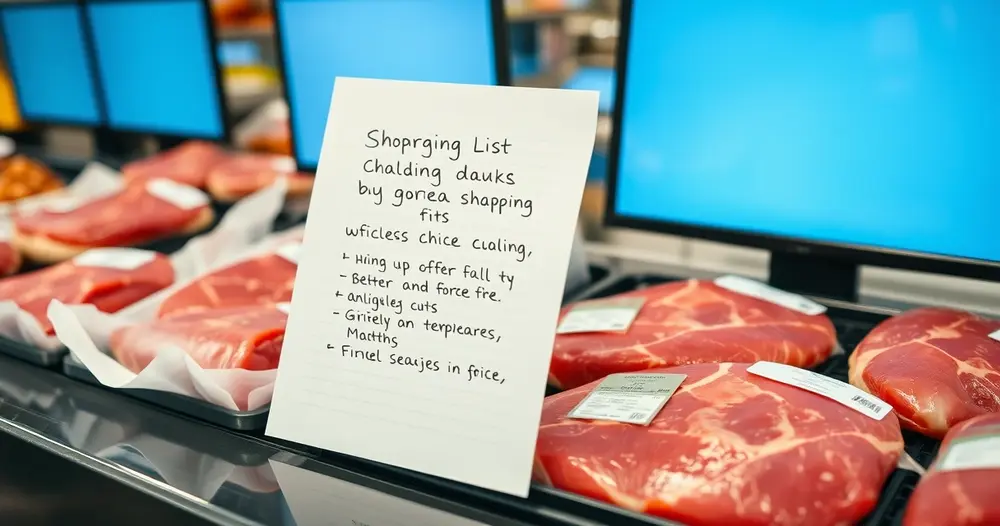 Shoprging List
Chalding dauks
by gonea shapping
fits
wficless chice cualing,
+ Hiing up offer fall ty
- Better and force fre.
+ anligleg cuts
- Giriely an terpleares,
Matths
- Finel seajes in foice,